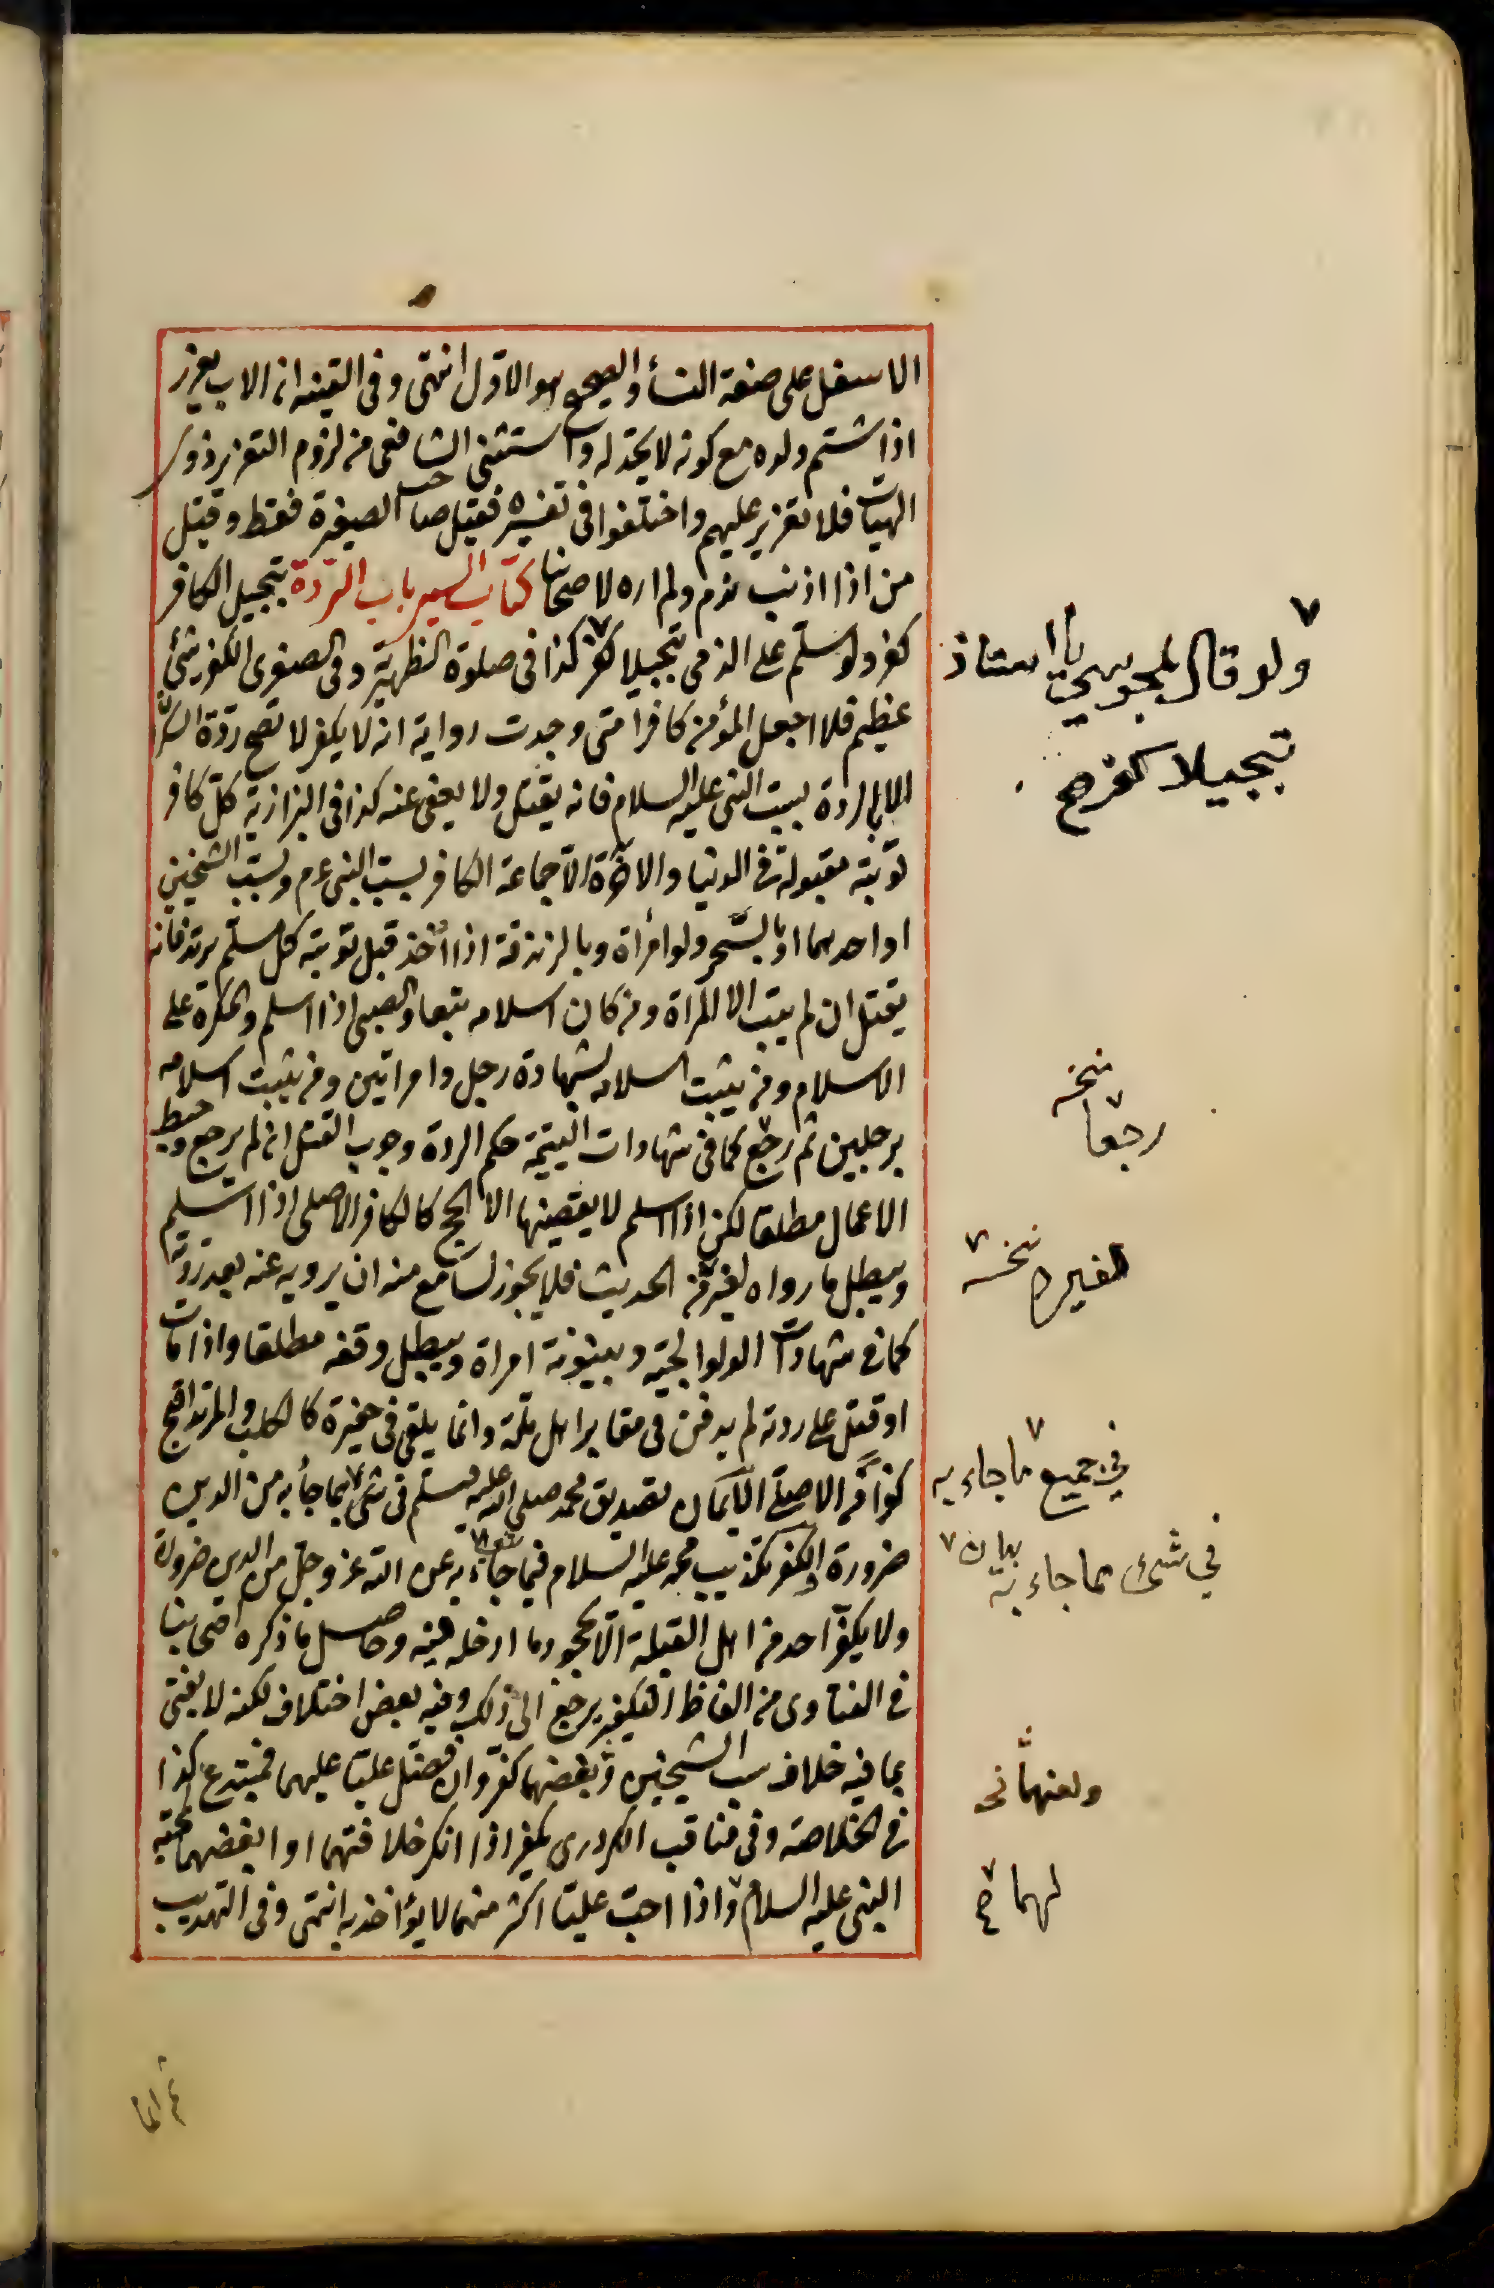 الاسفل على صفة النسأ والصحيح هو الاوّل انتهى وفى القينه ان الاب يعزر
اذا شتم ولده مع كونه لا يحد له واستثنى الشافعى من لزوم التعزير ذوى
الهيات فلا تعزير عليهم واختلفوا فى تفسيره فقيل صاحب الصغيرة فقط وقيل
من اذا اذنب ندم ولم اره لاصحابنا كتاب السير باب الرّدة بتجيل الكافر
كفر ولو سلّم على الذمى تبجيلا كفر كذا فى صلوة الظهيرية وفى الصغرى الكفر شئ
عظيم فلا اجعل المؤمن كافرا متى وجدت رواية انه لا يكفر لا تصح ردّة السكران
الا الردة بسبب النبى عليه السلام فانه يقتل ولا يعفى عنه كذا فى البزازية كل كافر
توبته مقبولة فى الدنيا والاخرة الا جماعة الكافر بسبّ النبى ءم وبسبّ الشيخين
او احدهما او بالسّحر ولو امرأة وبالزندقة اذا اُخذ قبل توبته كل مسلم يرتد فانه
يقتل ان لم يتب الا المراة ومن كان اسلامه تبعا والصبى اذا اسلم والمكره على
الاسلام ومن يثبت اسلامه بشهادة رجل وامراتين ومن يثبت اسلامه
برجلين ثم رجع كما فى شهادات اليتيمة حكم الردة وجوب القتل ان لم يرجع وحبط
الاعمال مطلقا لكن اذا اسلم لا يقضيها الا الحج كالكافر الاصلى اذا اسلم
ويبطل ما رواه لغيره من الحديث فلا يجوز لسامع منه ان يرويه عنه بعد ردّته
كما فى شهادات الولوالجية وبينونة امراة ويبطل وقفه مطلقا واذا مات
او قتل على ردته لم يدفن فى مقابر اهل ملة وانما يلقى فى حفيرة كالكلب والمرتد اقبح
كفرا من الاصلى الايمان تصديق محمد صلى الله عليه وسلم فى شئ مما جأ به من الدين
ضرورة والكفر تكذيب محمد عليه السلام فيما جاء به عن الله عز وجل من الدين ضرورة
ولا يكفر احد من اهل القبلة الّا بجحود ما ادخله فيه وحاصل ما ذكره اصحابنا
فى الفتاوى من الفاظ التكفير يرجع الى ذلك وفيه بعض اختلاف لكنه لا يفتى
بما فيه خلاف سب الشيخين وبغضهما كفر وان فضّل عليّا عليهما فمبتدع كذا
فى الخلاصة وفى مناقب الكردرى يكفر اذا انكر خلافتهما او ابغضهما لمحبّة
النبى عليه السلام واذا احبّ عليّا اكثر منهما لا يؤاخذ به انتهى وفى التهذيب
ولو قال لمجوسى يا استاذ
تبجيلا كفر صح
نسخه
رجعا
لغيره نسخه
فى جميع ما جاء به
فى شئ مما جاء به
بيان
ولعنهما
لهما صح
ثم انما